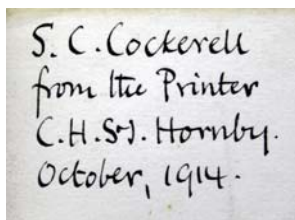 S. C. Cockerell
from the Printer
C. H. St J. Hornby.
October, 1914.